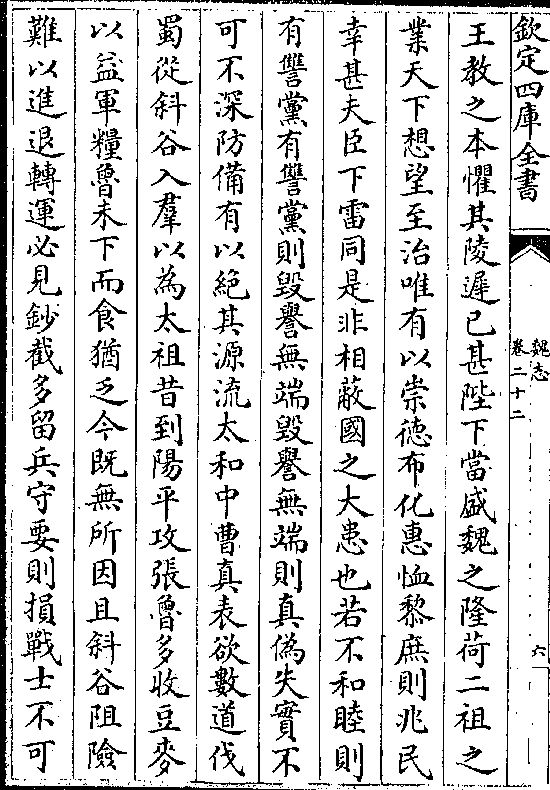 欽定四庫全書
魏志
卷二十二
六
王教之本懼其陵遲已甚陛下當盛魏之隆荷二祖之
業天下想望至治唯有以崇德布化惠恤黎庶則兆民
幸甚夫臣下雷同是非相蔽國之大患也若不和睦則
有讐黨有讐黨則毀譽無端毀譽無端則真偽失實不
可不深防備有以絶其源流太和中曹真表欲數道伐
蜀從斜谷入羣以為太祖昔到陽平攻張魯多收豆麥
以益軍糧魯未下而食猶乏今既無所因且斜谷阻險
難以進退轉運必見鈔截多留兵守要則損戰士不可